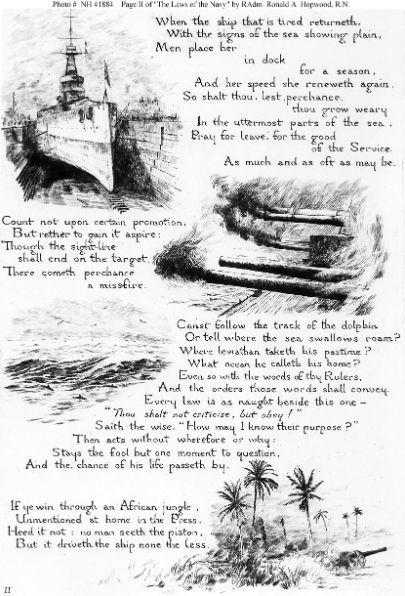 Photo # NH 41884 Page II of "The Laws of the Navy" by RAdm. Ronald A. Hopwood, R.N.
When the ship that is tired returneth,
With the signs of the sea showing plain,
Men place her
in dock
for a season,
And her speed she reneweth again.
So shalt thou, lest perchance,
thou grow weary
In the uttermost parts of the sea,
Pray for leave, for the good
of the Service.
As much and as oft as may be.
Count not upon certain promotion,
But rather to gain it aspire;
Though the sight-line
shall end on the target,
There cometh perchance
a missfire.
Canst follow the track of the dolphin
Or tell where the sea swallows roam?
Where leviathan taketh his pastime?
What ocean he calleth his home?
Even so with the words of thy Rulers,
And the orders those words shall convey.
Every law is as naught beside this one—
"Thou shalt not criticise, but obey!"
Saith the wise. "How may I know their purpose?"
Then acts without wherefore or why:
Stays the fool but one moment to question,
And the chance of his life passeth by.
If ye win through an African jungle,
Unmentioned at home in the Press,
Heed it not: no man seeth the piston,
But it driveth the ship none the less.
II